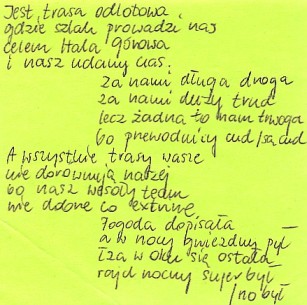 Jest trasa odlotowa,
gdzie szlak prowadzi nas
celem Hala Górowa
i nasz udany czas.
za nami długa droga
za nami duży trud
lecz żadna to nam trwoga
bo przewodnicy cud /są cud
A wszystkie trasy wasze
nie dorównują naszej
bo nasz wesoły team
nie dobne co extrime
Pogoda dopisała
a w nocy gwiezdny pył
łza w oku się ostała
rajd nocny super był
/no był